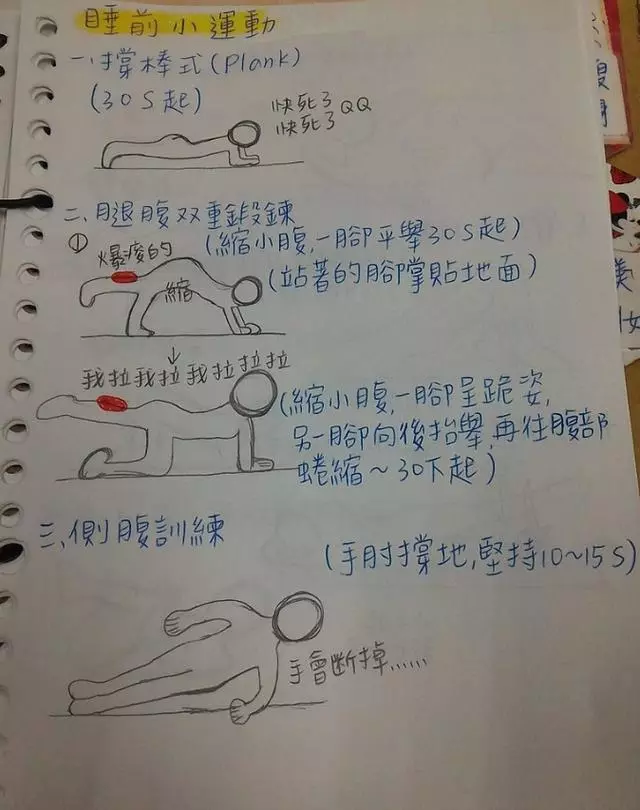 睡前小運動
一、撐棒式(Plank)
(30S起)
快死了QQ
快死了
二、腿腹双重鍛鍊
① 爆痠的
(縮小腹,一腳平舉30S起)
(站著的腳掌貼地面)
縮
我拉我拉我拉拉拉
(縮小腹,一腳呈跪姿,
另一腳向後抬舉,再往腹部
蜷縮~30下起)
三、側腹訓練
(手肘撐地,堅持10~15S)
手會斷掉……
美
女